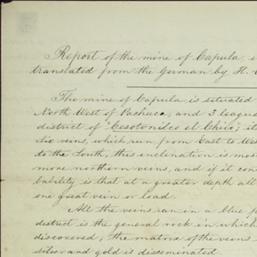 Report of the mine of Capula,
translated from the German by H.
The mine of Capula is situated
North West of Pachuca, and 3 league
district of Cosotonilco el Chico; it
six veins, which run from East to We
to the South, this inclination is mos
more northern veins, and if it con
bability is that at a greater depth all
one great vein or load.
All the veins run in a blue p
district is the general rock in which
discovered, the matrix of the veins
silver and gold is disseminated.